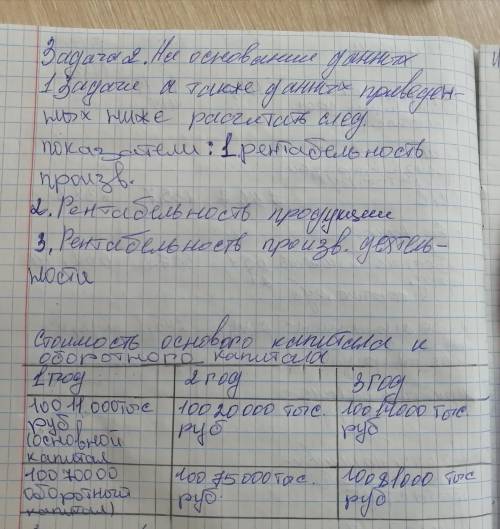 Задача 2. На основании данных
1 Задачи а также данных приведен-
ных ниже расчитать след.
показатели: 1. рентабельность
произв.
2. Рентабельность продукции
3. Рентабельность произв. деятель-
ности
Стоимость основого капитала и
оборотного капитала
1 год 2 год 3 год
100 11.000 тыс руб (основной капитал 100 20 000 тыс. руб 100 14000 тыс руб
100 70000 оборотный капитал) 100 75 000 тыс. руб. 100 81000 тыс руб